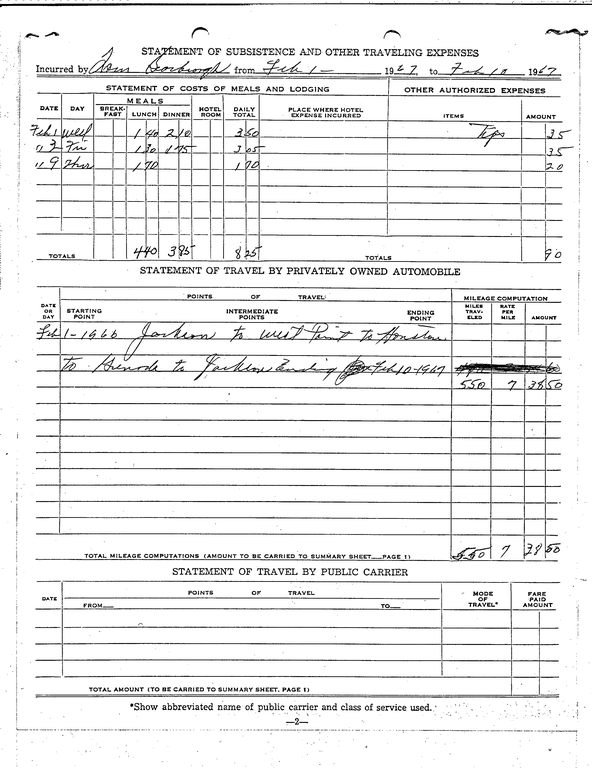 STATEMENT OF SUBSISTENCE AND OTHER TRAVELING EXPENSES
Incurred by Tom Scarbrough from Feb 1- 1967, to Feb 10 1967
STATEMENT OF COSTS OF MEALS AND LODGING OTHER AUTHORIZED EXPENSES
DATE DAY MEALS HOTEL ROOM DAILY TOTAL PLACE WHERE HOTEL EXPENSE INCURRED ITEMS AMOUNT
BREAK-FAST LUNCH DINNER
Feb 1 Wed 1 40 2 10 3 50 Tips 35
" 3 Fri 1 30 1 75 3 05 35
" 9 Thur 1 70 1 70 20
TOTALS 4 40 3 85 8 25 TOTALS 90
STATEMENT OF TRAVEL BY PRIVATELY OWNED AUTOMOBILE
DATE OR DAY POINTS OF TRAVEL MILEAGE COMPUTATION
STARTING POINT INTERMEDIATE POINTS ENDING POINT MILES TRAV-ELED RATE PER MILE AMOUNT
Feb 1-1966 Jackson to West Point to Houston
to Grenada to Jackson Ending Feb 10-1967
550 7 38 50
TOTAL MILEAGE COMPUTATIONS (AMOUNT TO BE CARRIED TO SUMMARY SHEET__PAGE 1) 550 7 38 50
STATEMENT OF TRAVEL BY PUBLIC CARRIER
DATE POINTS OF TRAVEL MODE OF TRAVEL* FARE PAID AMOUNT
FROM__ TO__
TOTAL AMOUNT (TO BE CARRIED TO SUMMARY SHEET. PAGE 1)
*Show abbreviated name of public carrier and class of service used.
—2—